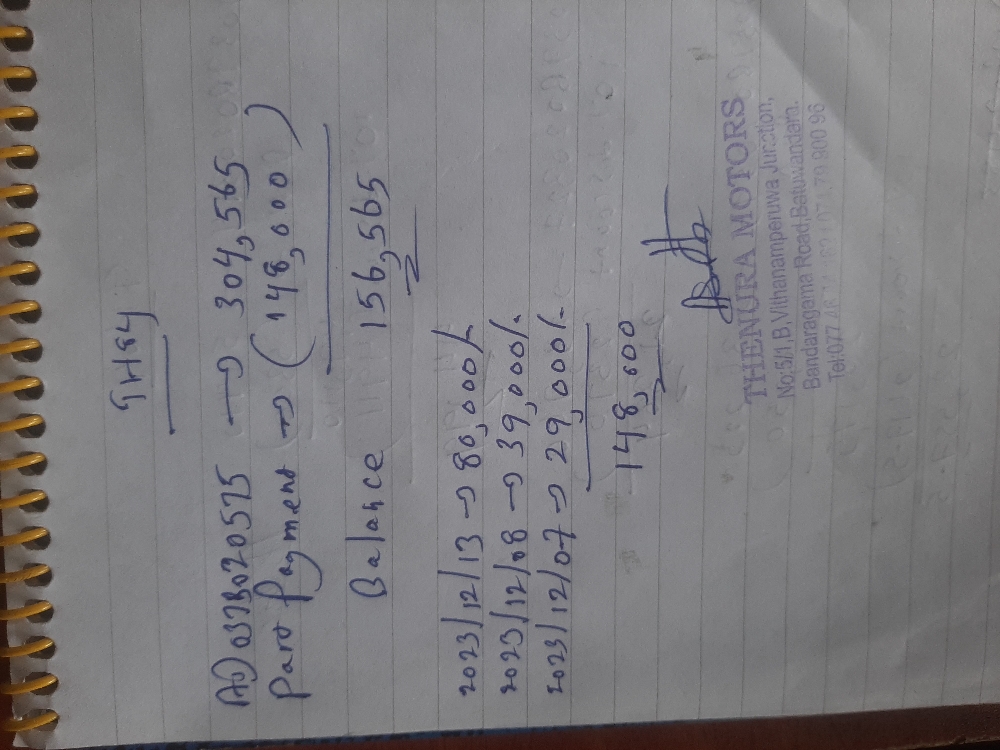 TH84
AD037B020575 → 304,565
Part Payment → (148,000)
Balance 156,565
2023/12/13 → 80,000/.
2023/12/08 → 39,000/.
2023/12/07 → 29,000/.
148,000
THENURA MOTORS
No:5/1,B,Vithanamperuwa Junction,
Bandaragama Road,Batuwandara.
Tel:077